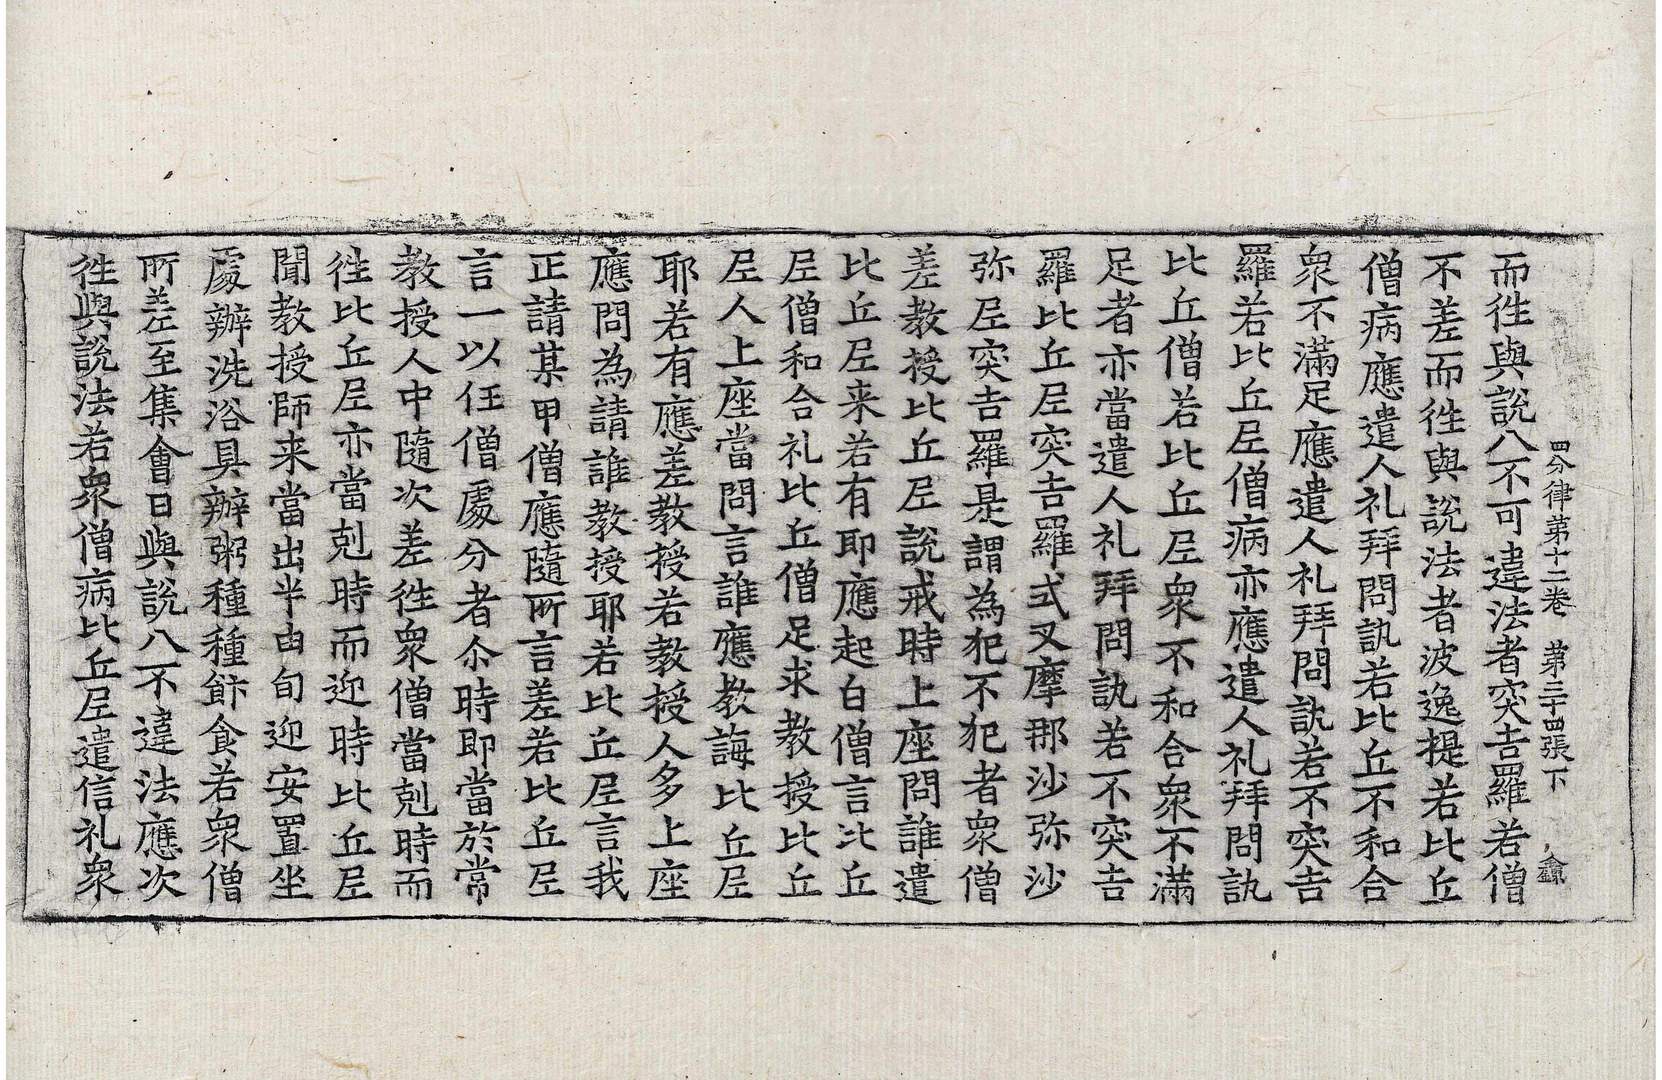 四分律第十二卷　第三十四張下
而徃與說八不可違法者突吉羅若僧
不差而徃與說法者波逸提若比丘
僧病應遣人礼拜問訊若比丘不和合
衆不滿足應遣人礼拜問訊若不突吉
羅若比丘尼僧病亦應遣人礼拜問訊
比丘僧若比丘尼衆不和合衆不滿
足者亦當遣人礼拜問訊若不突吉
羅比丘尼突吉羅式叉摩那沙弥沙
弥尼突吉羅是謂為犯不犯者衆僧
差教授比丘尼說戒時上座問誰遣
比丘尼来若有即應起白僧言比丘
尼僧和合礼比丘僧足求教授比丘
尼人上座當問言誰應教誨比丘尼
耶若有應差教授若教授人多上座
應問為請誰教授耶若比丘尼言我
正請某甲僧應隨所言差若比丘尼
言一以任僧處分者尒時即當於常
教授人中隨次差徃衆僧當剋時而
徃比丘尼亦當剋時而迎時比丘尼
聞教授師来當出半由旬迎安置坐
處辦洗浴具辦粥種種飰食若衆僧
所差至集會日與說八不違法應次
徃與說法若衆僧病比丘尼遣信礼衆